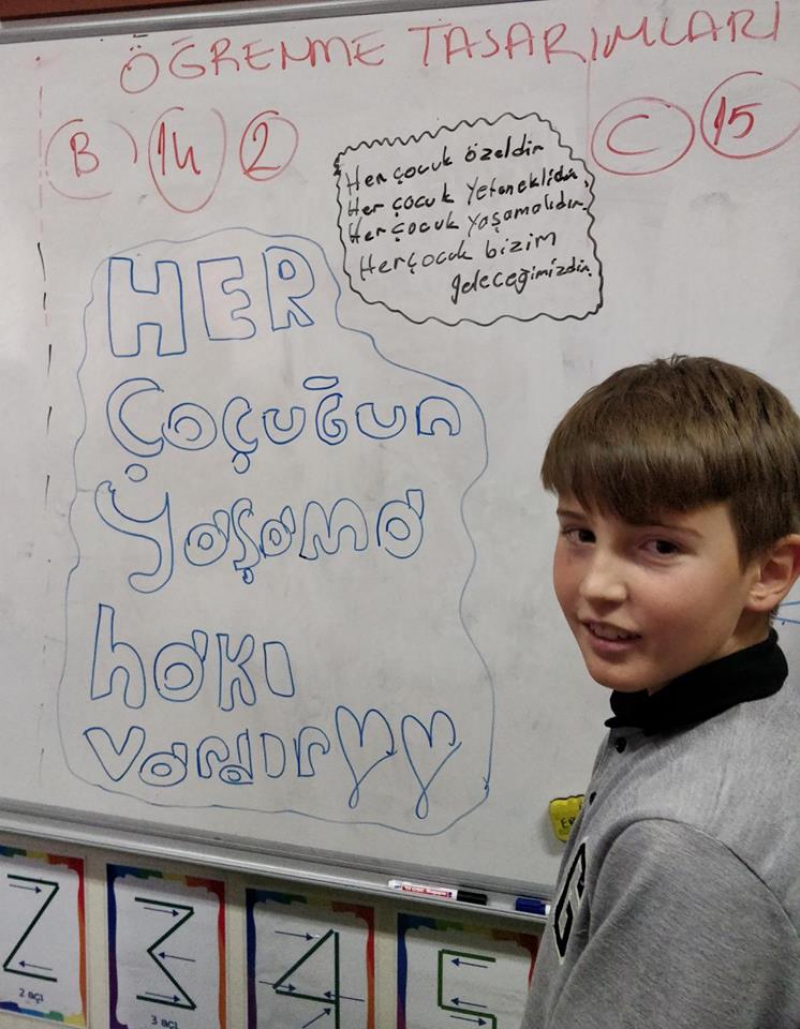 ÖĞRENME TASARIMLARI
B 14 2
C 15
Her çocuk özeldir
Her çocuk yeteneklidir,
Her çocuk yaşamalıdır.
Her çocuk bizim
geleceğimizdir.
HER
Çoçuğun
Yaşama
hakı
Vardır
2 açı
3 açı